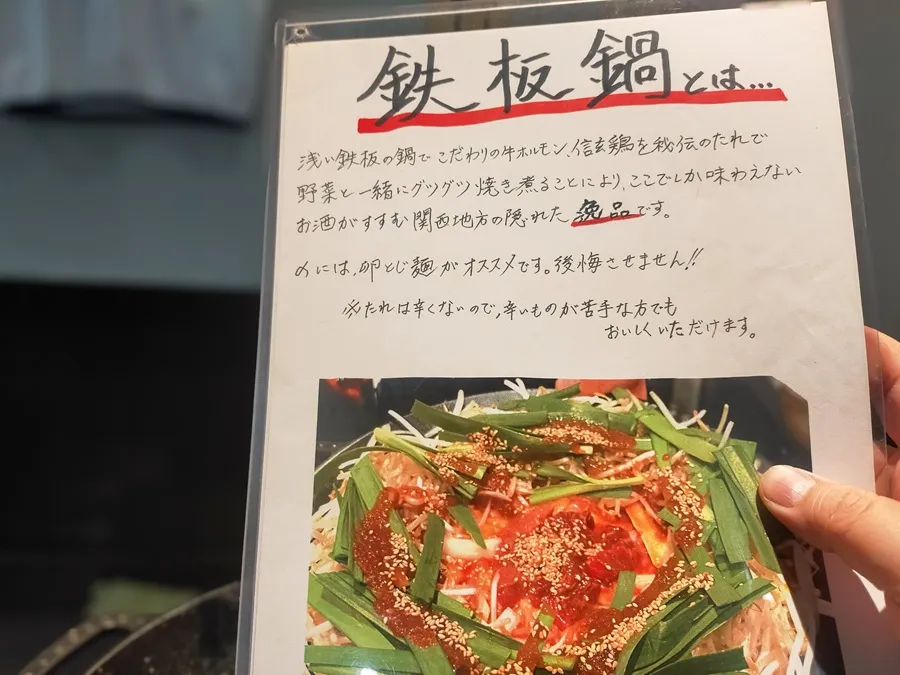 鉄板鍋とは…
浅い鉄板の鍋でこだわりの牛ホルモン、信玄鶏を秘伝のたれで
野菜と一緒にグツグツ焼き煮ることにより、ここでしか味わえない
お酒がすすむ関西地方の隠れた逸品です。
〆には、卵とじ麺がオススメです。後悔させません!!
※たれは辛くないので、辛いものが苦手な方でも
おいしくいただけます。